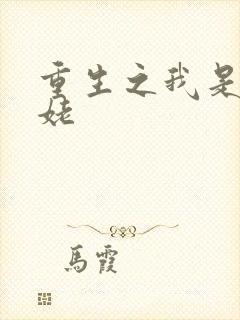 重生之我是
姥
馬霞